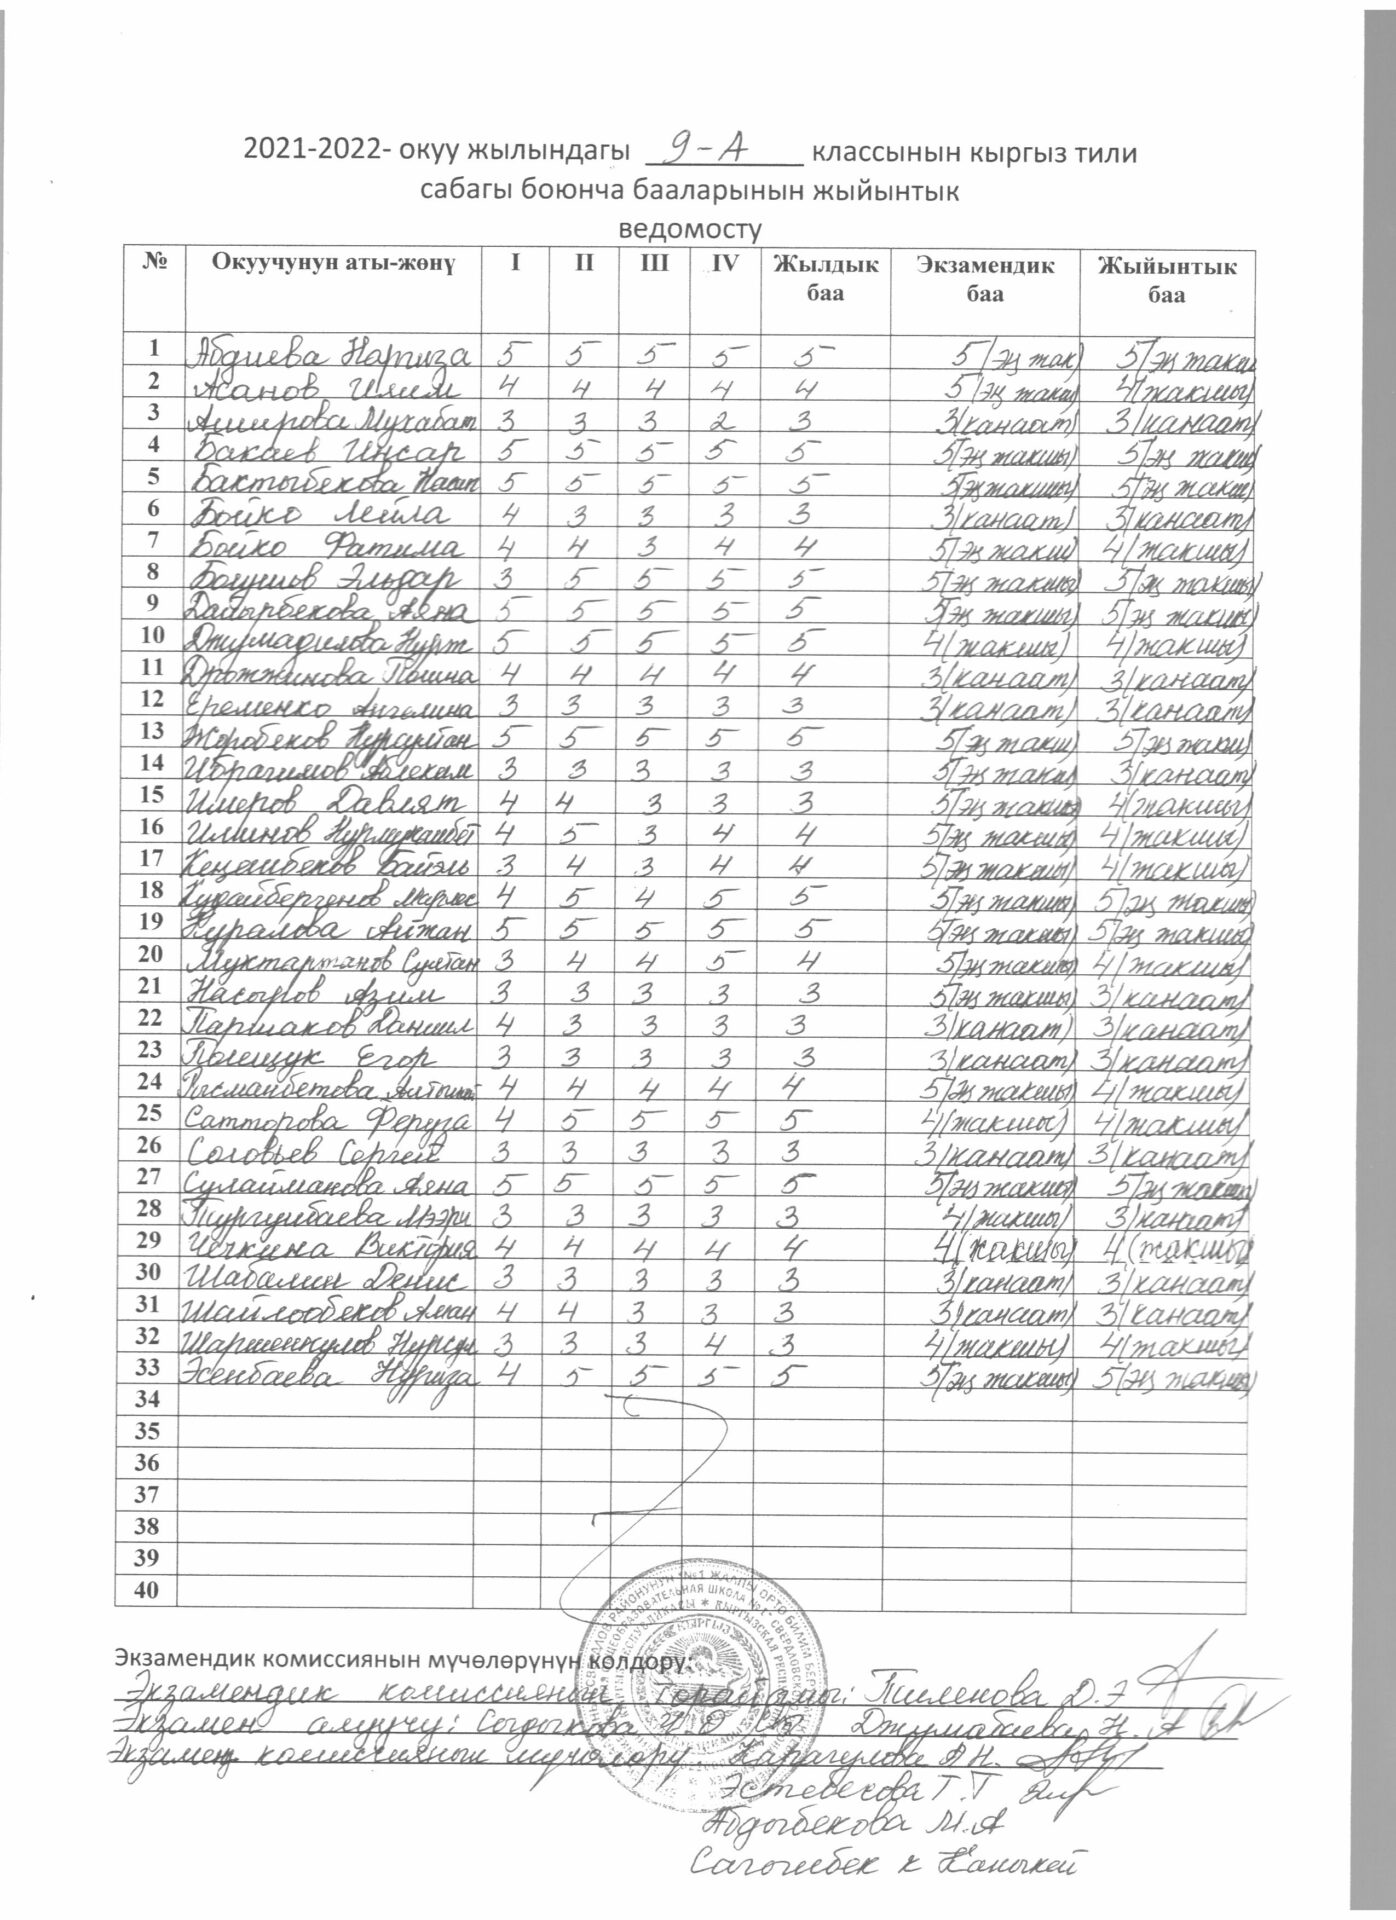 2021-2022- окуу жылындагы 9-А классынын кыргыз тили
сабагы боюнча бааларынын жыйынтык
ведомосту
№ Окуучунун аты-жөнү I II III IV Жылдык баа Экзамендик баа Жыйынтык баа
1 Абдиева Наргиза 5 5 5 5 5 5(эң жак) 5(эң жакш
2 Асанов Илим 4 4 4 4 4 5(эң жакш) 4(жакшы)
3 Аширова Мухабат 3 3 3 2 3 3(канаат) 3(канаат)
4 Бакаев Инсар 5 5 5 5 5 5(эң жакшы) 5(эң жакш)
5 Бактыбекова Насип 5 5 5 5 5 5(эң жакшы) 5(эң жакш)
6 Бойко Лейла 4 3 3 3 3 3(канаат) 3(канаат)
7 Бойко Фатима 4 4 3 4 4 5(эң жакш) 4(жакшы)
8 Эльдар 3 5 5 5 5 5(эң жакшы) 5(эң жакшы)
9 Дайырбекова Аяна 5 5 5 5 5 5(эң жакшы) 5(эң жакшы)
10 Джумадилова 5 5 5 5 5 4(жакшы) 4(жакшы)
11 Дрожжинова 4 4 4 4 4 3(канаат) 3(канаат)
12 Еременко Ангелина 3 3 3 3 3 3(канаат) 3(канаат)
13 Жоробеков 5 5 5 5 5 5(эң жакш) 5(эң жакш)
14 Ибрагимов 3 3 3 3 3 5(эң жакш) 3(канаат)
15 Имеров Давлят 4 4 3 3 3 5(эң жакшы) 4(жакшы)
16 4 5 3 4 4 5(эң жакшы) 4(жакшы)
17 Кеңешбеков Байэль 3 4 3 4 4 5(эң жакшы) 4(жакшы)
18 Кудайбергенов 4 5 4 5 5 5(эң жакшы) 5(эң жакшы)
19 Куралова Айжан 5 5 5 5 5 5(эң жакшы) 5(эң жакшы)
20 Мухтаржанов Султан 3 4 4 5 4 5(эң жакшы) 4(жакшы)
21 Насыров Азим 3 3 3 3 3 5(эң жакшы) 3(канаат)
22 Паршаков Даниил 4 3 3 3 3 3(канаат) 3(канаат)
23 Полещук Егор 3 3 3 3 3 3(канаат) 3(канаат)
24 Рысманбетова 4 4 4 4 4 5(эң жакшы) 4(жакшы)
25 Сатторова Феруза 4 5 5 5 5 4(жакшы) 4(жакшы)
26 Соловьев Сергей 3 3 3 3 3 3(канаат) 3(канаат)
27 Сулайманова Аяна 5 5 5 5 5 5(эң жакшы) 5(эң жакшы)
28 Тургунбаева Мээри 3 3 3 3 3 4(жакшы) 3(канаат)
29 Чечкина Виктория 4 4 4 4 4 4(жакшы) 4(жакшы)
30 Шабалин Денис 3 3 3 3 3 3(канаат) 3(канаат)
31 Шайлообеков Алан 4 4 3 3 3 3(канаат) 3(канаат)
32 Шаршенкулов 3 3 3 4 3 4(жакшы) 4(жакшы)
33 Эсенбаева 4 5 5 5 5 5(эң жакшы) 5(эң жакшы)
34
35
36
37
38
39
40
Экзамендик комиссиянын мүчөлөрүнүн колдору:
Экзамендик комиссиянын Төрайымы: Тиленова Д.Э
Экзамен алуучу: Сыдыкова Джумабаева Н. А
Экзамен комиссиянын мүчөлөрү Карагулова А Н.
Эстебесова Г.Т
Абдыбекова М.А
Сагынбек к Каныкей